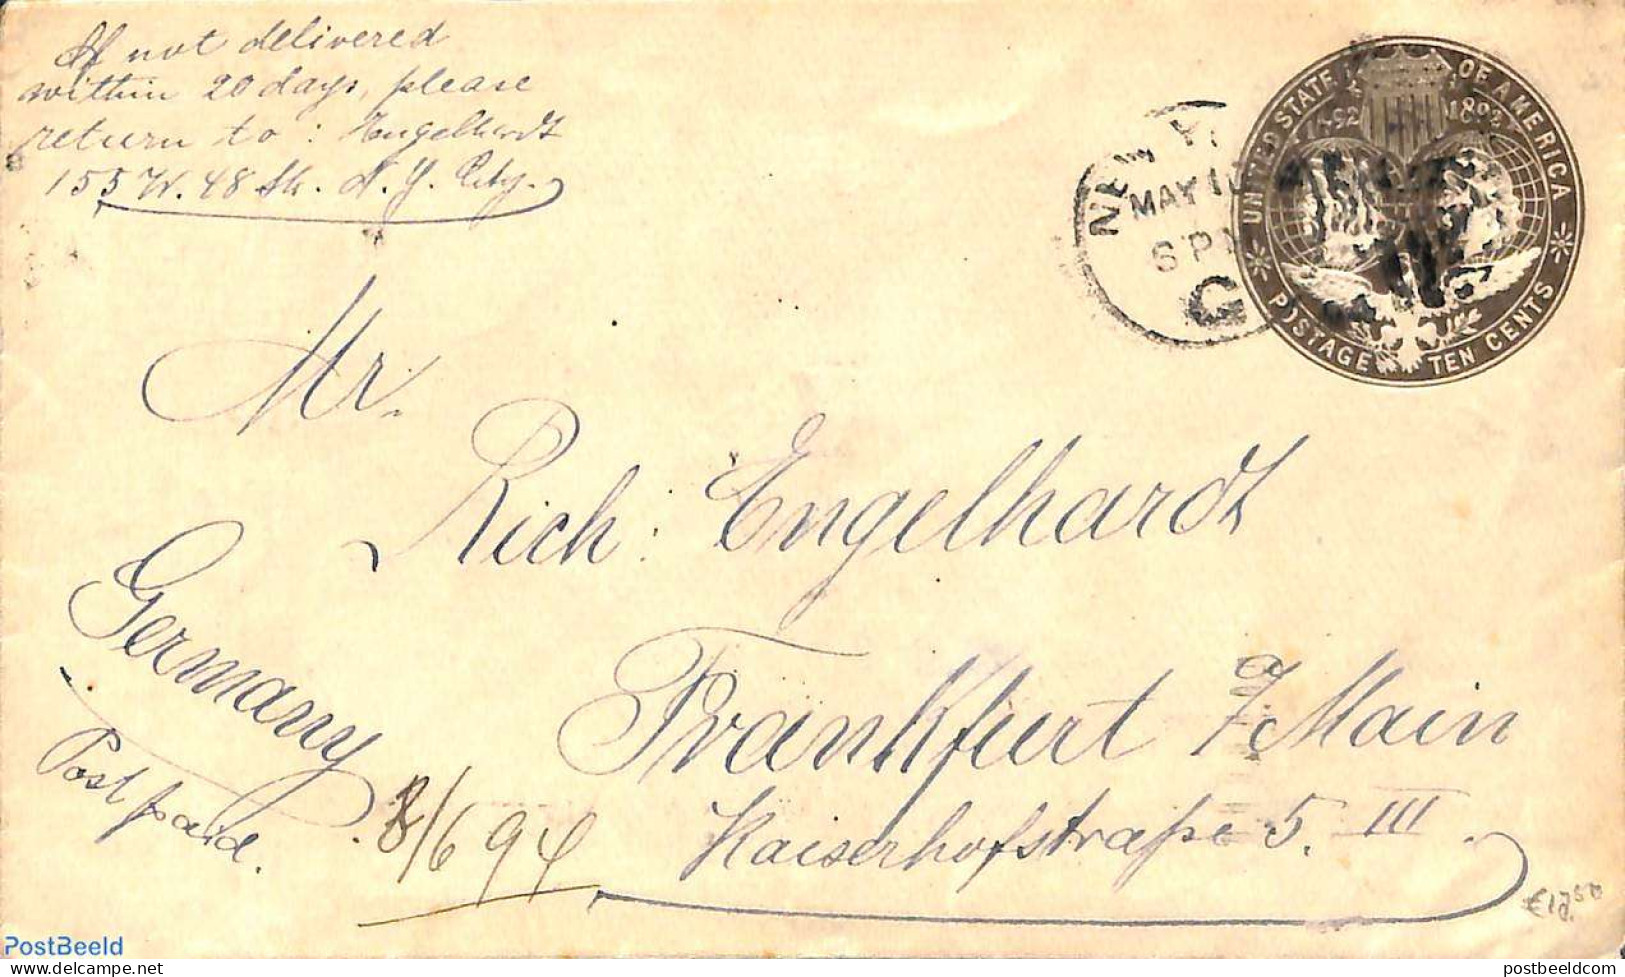 If not delivered
within 20 days, please
return to: Engelhardt
155 W. 48 Str. N. Y. City.
NEW Y
MAY 1
6 P
G
UNITED STATE OF AMERICA
1492 1892
POSTAGE TEN CENTS
Mr.
Rich: Engelhardt
Germany
Frankfurt a/Main
Post paid.
8/6 94
Kaiserhofstraße 5. III.
€17.50
PostBeeld
postbeeldcom